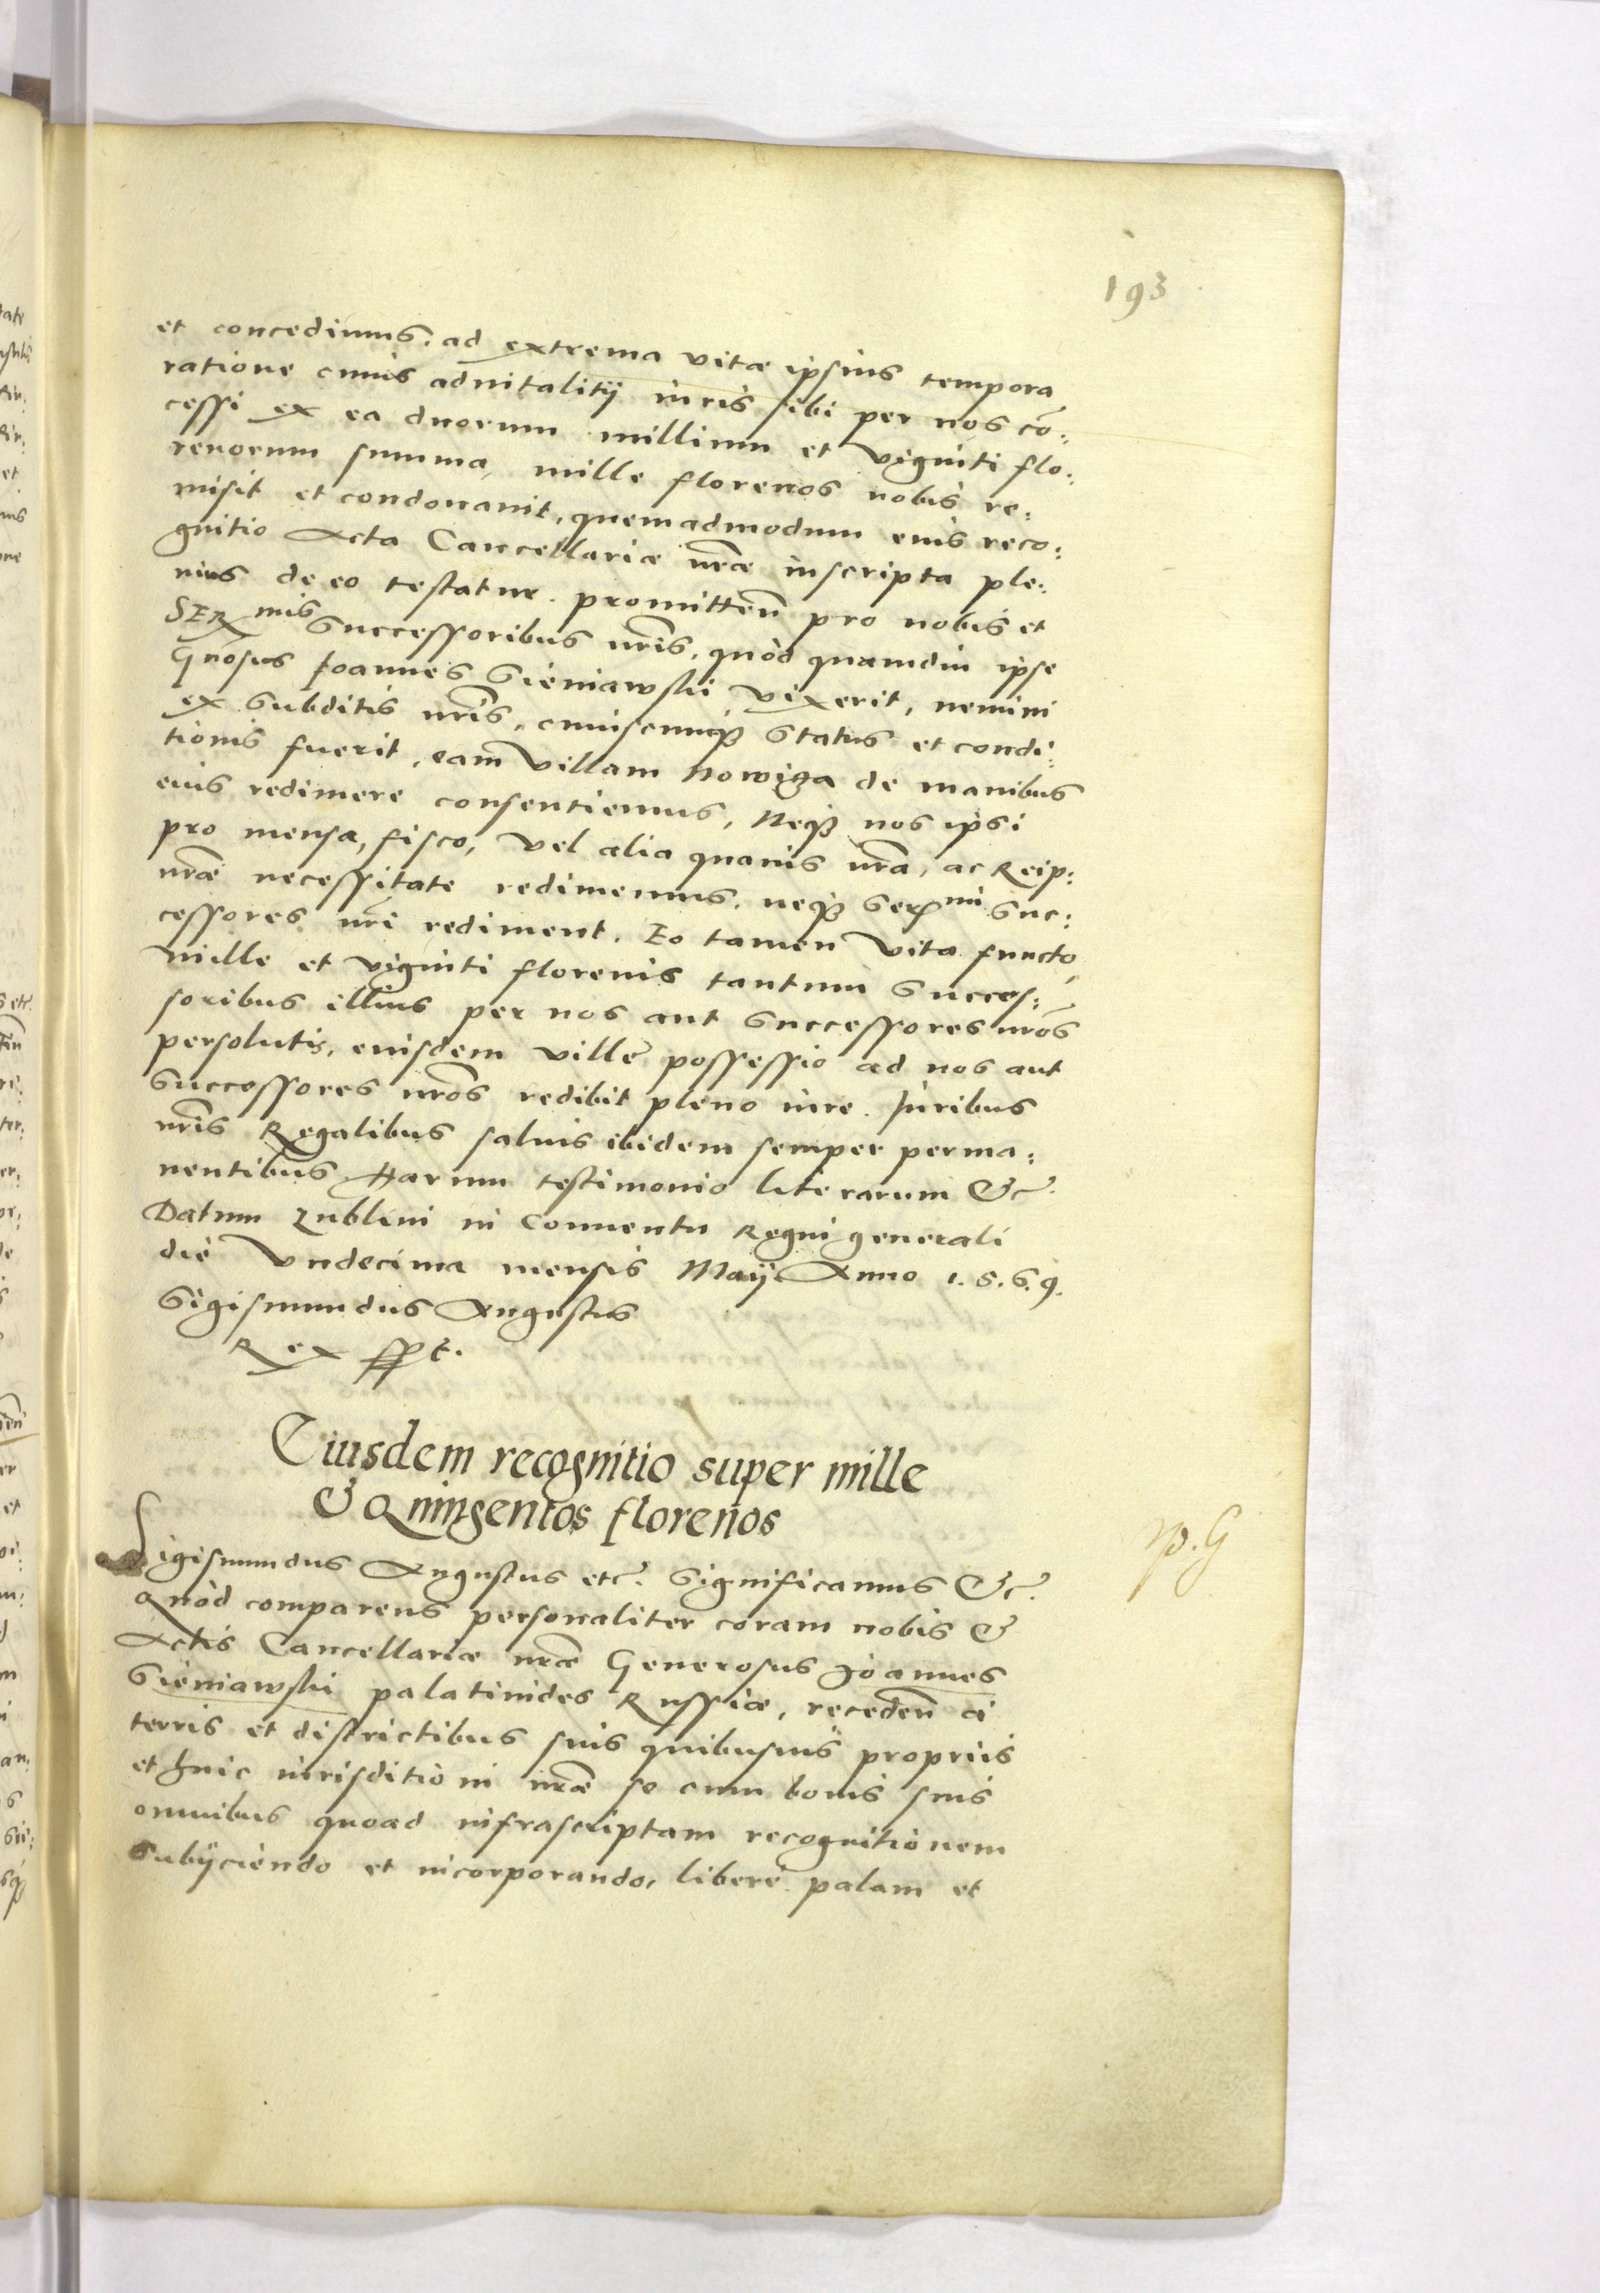 193
et concedimus. ad extrema vitæ ipsius tempora
ratione cuius aduitalitij iuris sibi per nos cō:
cessi ex ea duorum millium et viginti flo:
renorum summa, mille florenos nobis re:
misit et condonauit, quemadmodum eius reco:
gnitio Acta Cancellariæ nr̃æ inscripta ple:
nius de eo testatur. promitteñ pro nobis et
SER mis Successoribus nr̃is, quòd quamdiu ipse
Gnosus Joannes Sieniawski vixerit, nemini
ex Subditis nr̃is, cuiuscunqꝫ Status et condi:
tionis fuerit, eam Villam Nowiga de manibus
eius redimere consentiemus, Neqꝫ nos ipsi
pro mensa, fisco, vel alia quauis nr̃a, ac Reip:
nr̃æ necessitate redimemus. neqꝫ Sermi Suc:
cessores nr̃i rediment. Eo tamen vita functo,
mille et viginti florenis tantum Succes:
soribus illius per nos aut Successores nr̃os
persolutis, eiusdem ville possessio ad nos aut
Successores nr̃os redibit pleno iure. Juribus
nr̃is Regalibus saluis ibidem semper perma:
nentibus Harum testimonio literarum &c.
Datum Lublini in Conuentu Regni generali
die Vndecima mensis Maij Anno 1.5.6.9.
Sigismundus Augustus
Rex sspt.
Eiusdem recognitio super mille
& Quingentos florenos
p. G
Sigismundus Augustus etc. Significamus &c.
Quòd comparens personaliter coram nobis &
Actis Cancellariæ nr̃æ Generosus Joannes
Sieniawski palatinides Russiæ, recedeñ à
terris et districtibus suis quibusuis proprijs
et huic iurisditioni nr̃æ se cum bonis suis
omnibus quoad infrascriptam recognitionem
Subijciendo et incorporando, liberè palam et